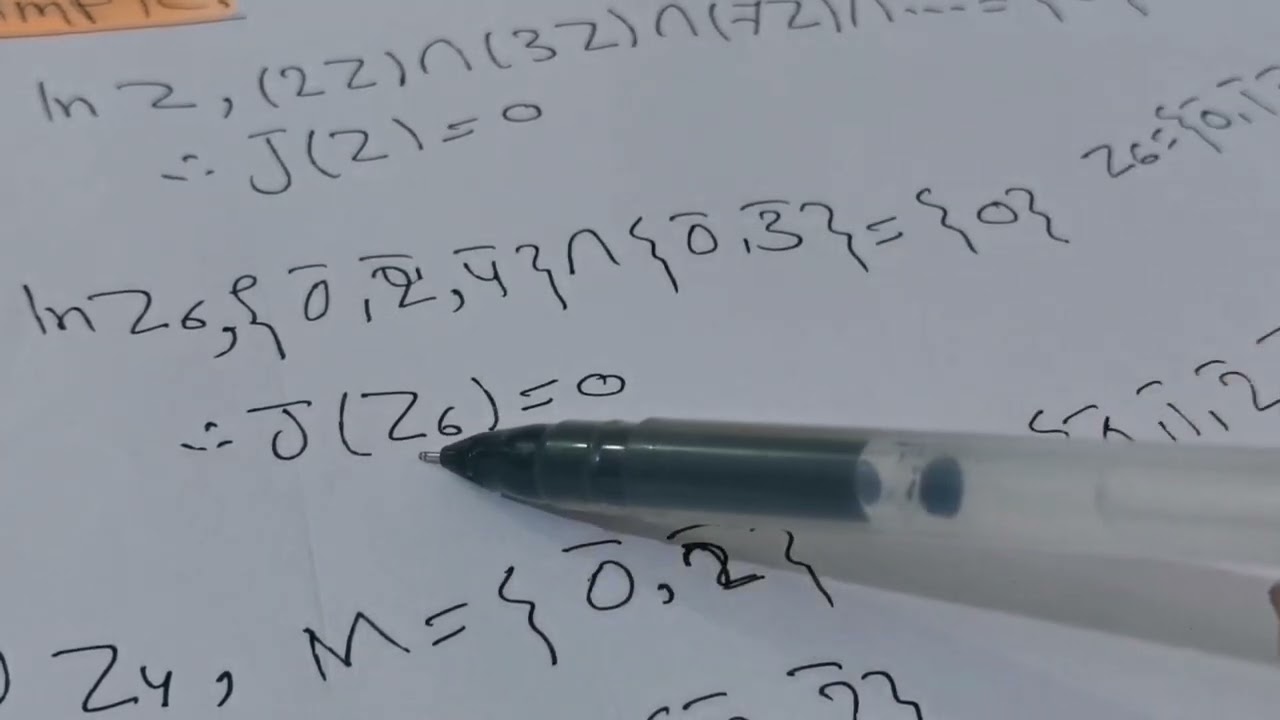 In Z, (2Z)∩(3Z)∩(7Z)∩....=
∴ J(Z)=0
Z6={0̄,1̄
In Z6, {0̄,2̄,4̄}∩{0̄,3̄}={0}
∴ J(Z6)=0
Z4, M={0̄,2̄}